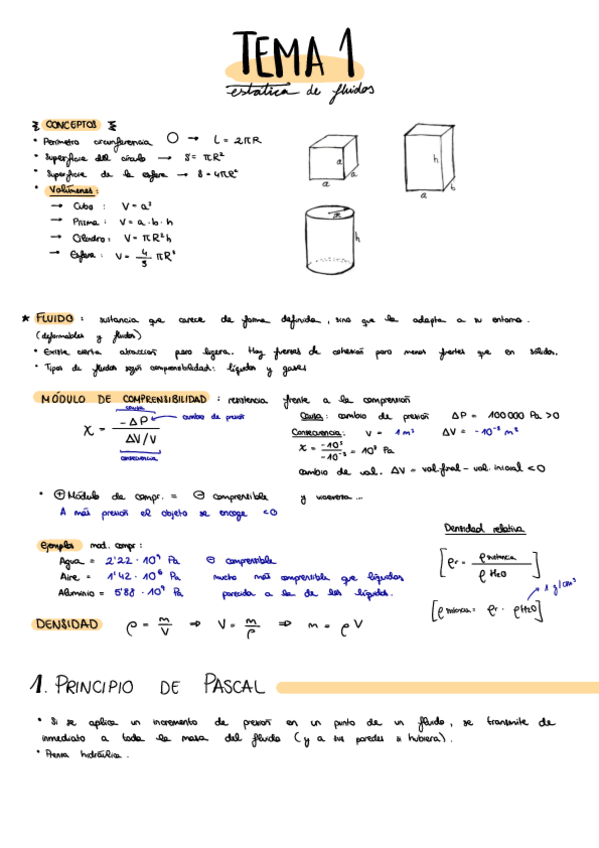 TEMA 1
estatica de fluidos
CONCEPTOS
• Perímetro circunferencia → L = 2πR
• Superficie del círculo → S = πR²
• Superficie de la esfera → S = 4πR²
• Volúmenes:
→ Cubo : V = a³
→ Prisma : V = a · b · h
→ Cilindro : V = πR²h
→ Esfera : V = 4/3 πR³
a
a
a
h
a
b
R
h
* FLUIDO : sustancia que carece de forma definida, sino que la adapta a su entorno.
(deformables y fluidos)
• Existe cierta atracción pero ligera. Hay fuerzas de cohesión pero menos fuertes que en sólidos.
• Tipos de fluidos según comprensibilidad: líquidos y gases
MÓDULO DE COMPRENSIBILIDAD : resistencia frente a la compresión
causa
χ = -ΔP / ΔV/V
cambio de presión
consecuencia
Causa: cambio de presión ΔP = 100 000 Pa > 0
Consecuencia: V = 1 m³ ΔV = -10⁻² m³
cambio de vol. ΔV = vol. final - vol. inicial < 0
• ⊕ Módulo de compr. = ⊖ comprensible y viceversa ...
A más presión el objeto se encoge < 0
Ejemplos mod. compr :
Agua = 2'22 · 10⁹ Pa ⊖ comprensible
Aire = 1'42 · 10⁵ Pa mucho más comprensible que líquidos
Aluminio = 5'88 · 10⁹ Pa parecida a la de los líquidos.
Densidad relativa
[ρr = ρ sustancia / ρ H₂O]
1 g/cm³
[ρ sustancia = ρr · ρ H₂O]
DENSIDAD ρ = m/V ⇒ V = m/ρ ⇒ m = ρV
1. PRINCIPIO DE PASCAL
• Si se aplica un incremento de presión en un punto de un fluido, se transmite de
inmediato a toda la masa del fluido (y a sus paredes si hubiera).
• Prensa hidráulica.